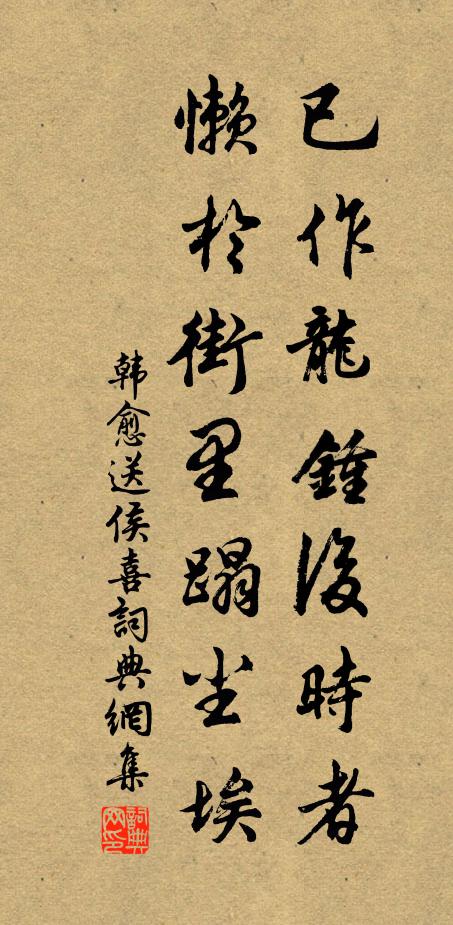 已作龍鍾後時者
懶於街里蹋尘埃
韩愈送侯喜詞典網集
詞典网印